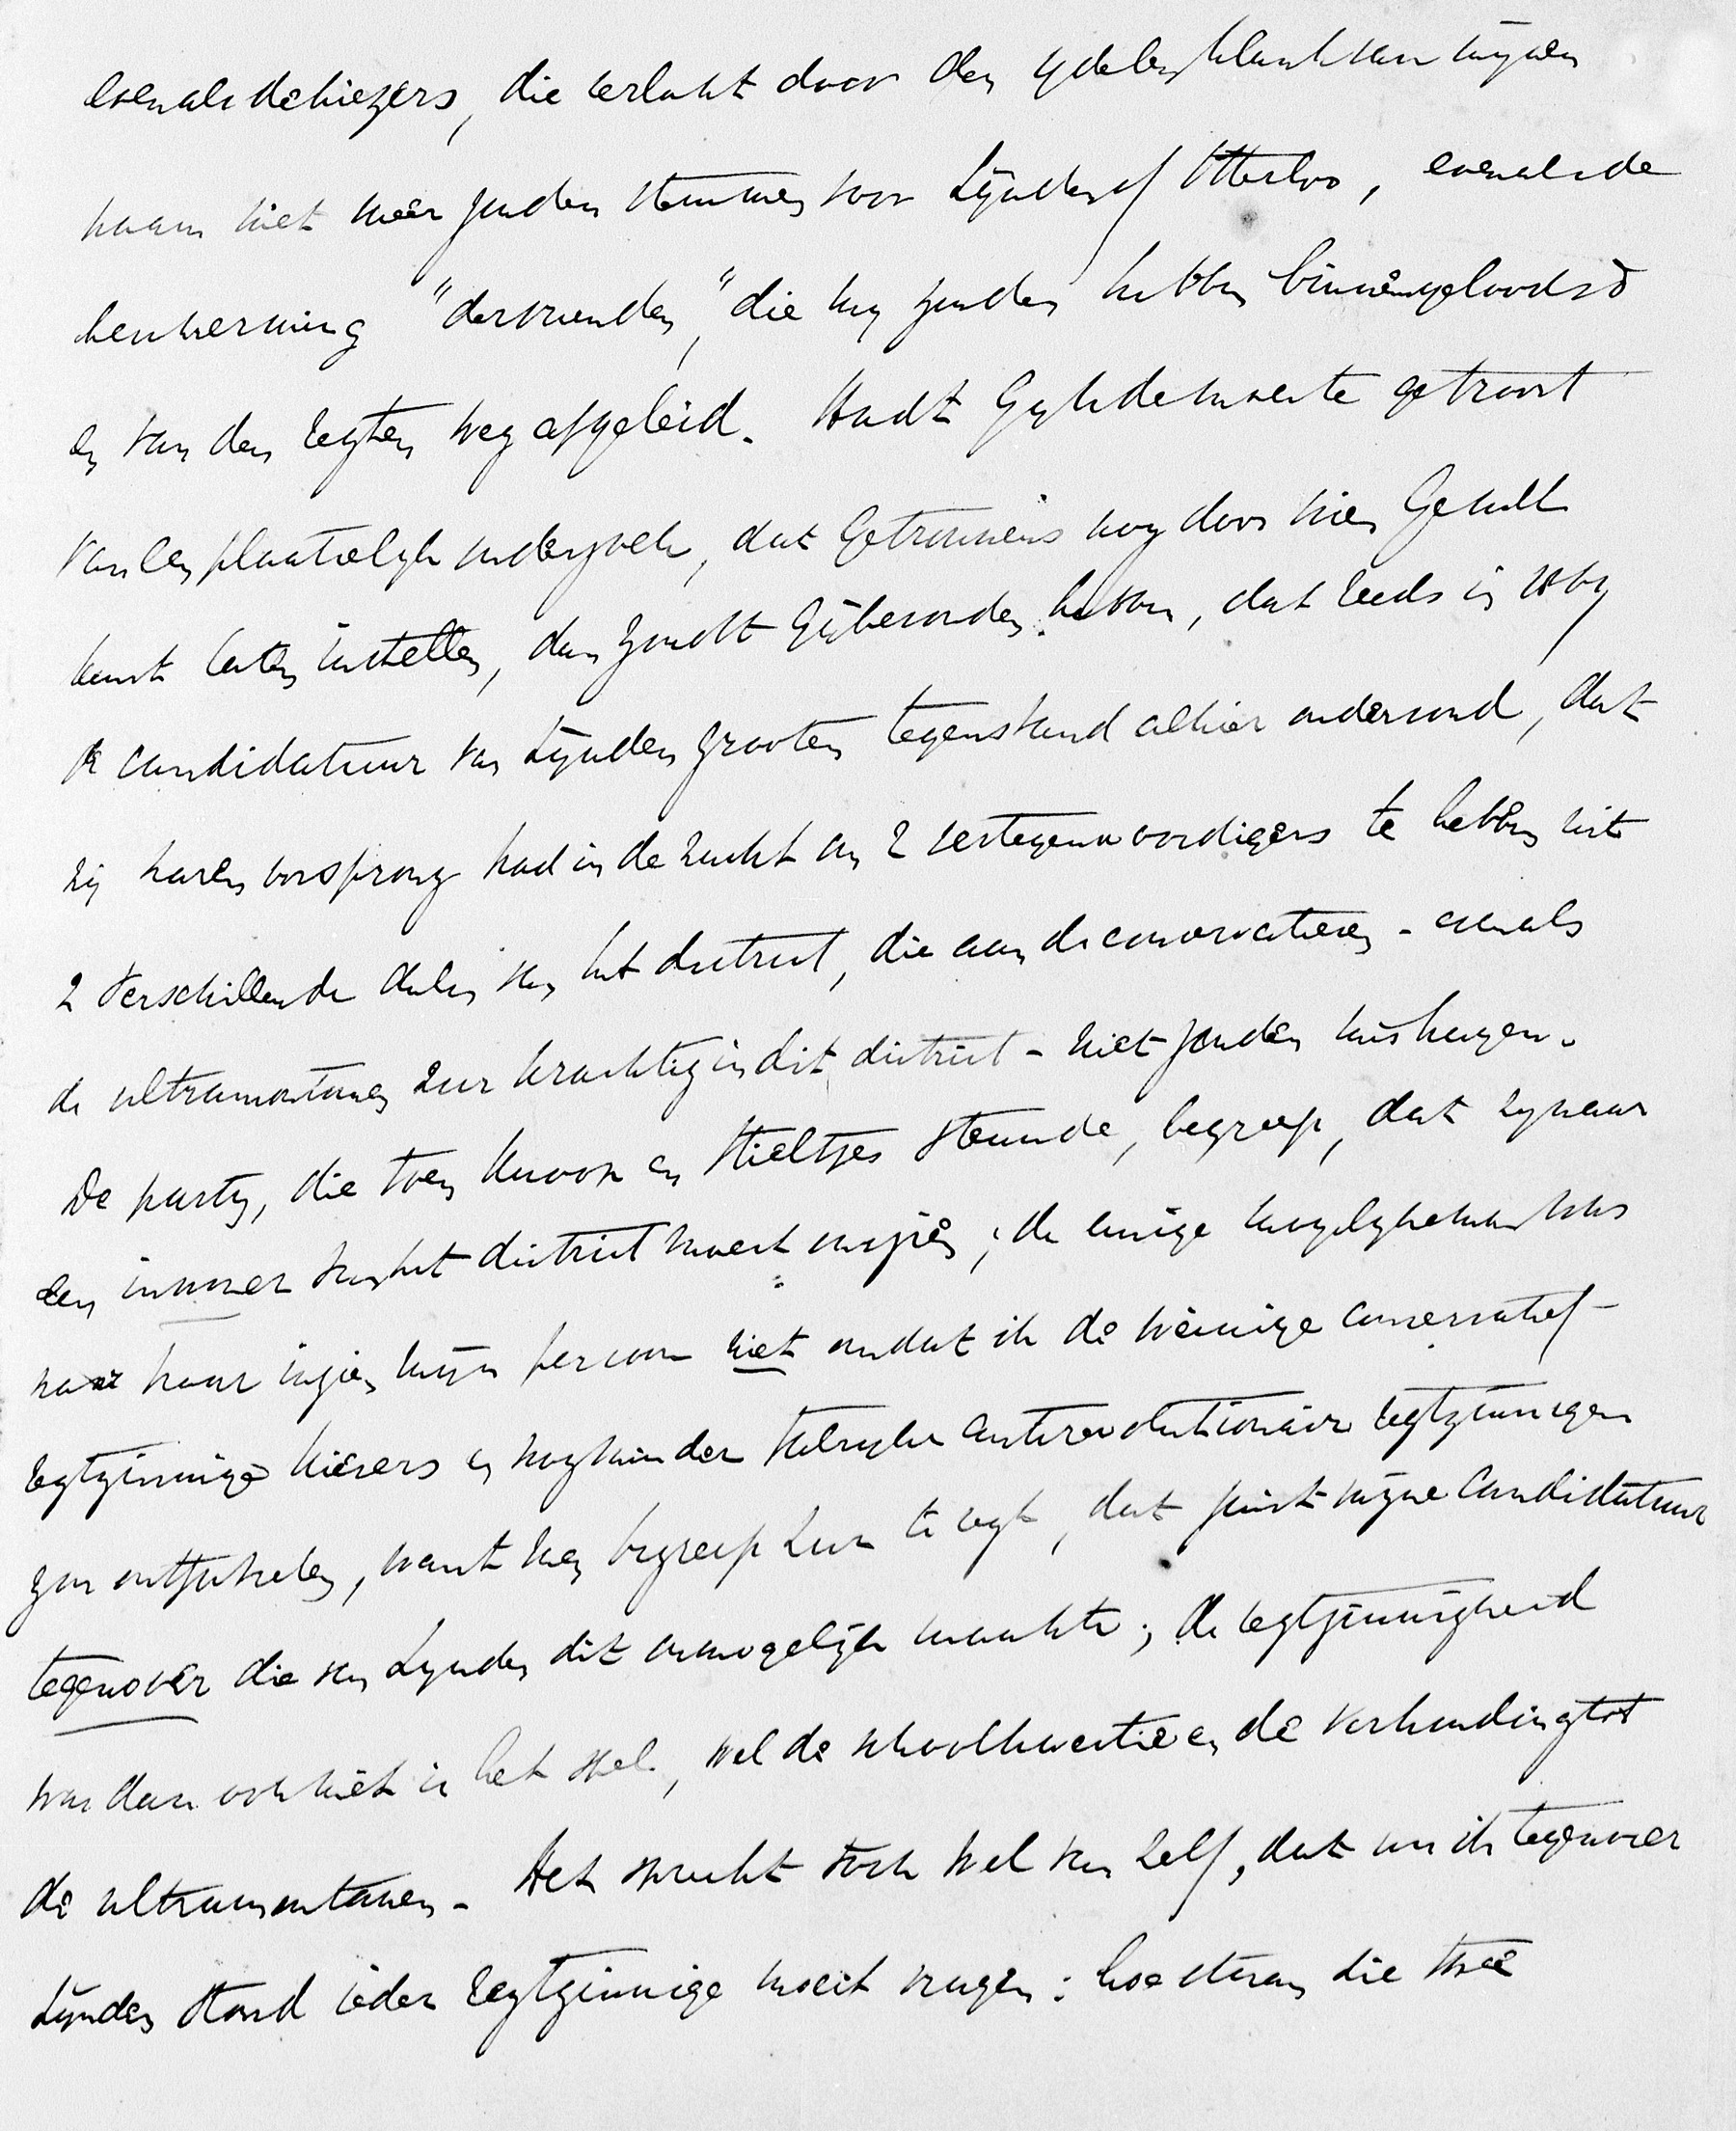 evenals de kiezers, die verlokt door den ydelen klank van mynen
naam niet meer zouden stemmen voor Lynden of Otterloo, evenals de
bescherming "der vrienden," die my zouden hebben binnengeloodsd
en van den regten weg afgeleid. Hadt Gy u de moeite getroost
van een plaatselyk onderzoek, dat Gy trouwens nog door niem Gewilt
kunt laten instellen, dan zoudt Gy bevonden hebben, dat reeds in
de candidatuur van Lynden grooten tegenstand alhier ondervond, dat
zy haren oorsprong had in de zucht om 2 vertegenwoordigers te hebben uit
2 verschillende delen van het district, die aan de conservatieven - evenals
de ultramontanen zeer krachtig in dit district - niet zouden mishagen.
De party, die toen en Stieltjes steunde, begreep, dat zy naar
een inwoner van het district moest omzien; de eenige mogelyke man was
naar haar inzien myn persoon niet omdat ik de weinige conservatief-
regtzinnige kiezers en nog minder talryke antirevolutionaire regtzinnigen
zou ontfutselen, want men begreep zeer te regt, dat juist myne candidatuur
tegenover die van Lynden dit onmogelyk maakte; de regtzinnigheid
was dan ook niet in het spel, wel de schoolkwestie en de verhouding tot
de ultramontanen. Het spreekt toch wel van zelf, dat nu ik tegenover
Lynden stond ieder regtzinnige moest vragen: hoe staan die twee